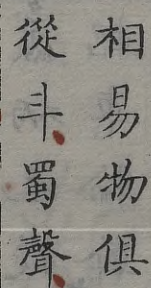 相易物俱
從斗蜀聲